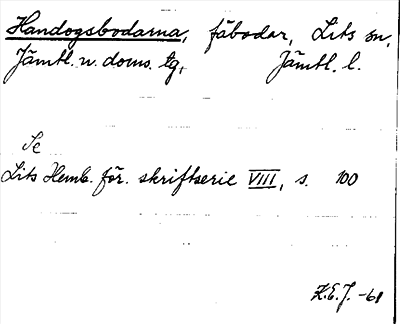 Handogsbodarna, fäbodar, Lits sn,
Jämtl. v. doms. tg, Jämtl. l.
Se
Lits Hemb. för. skriftserie VIII, s. 100
K.E.J. -61